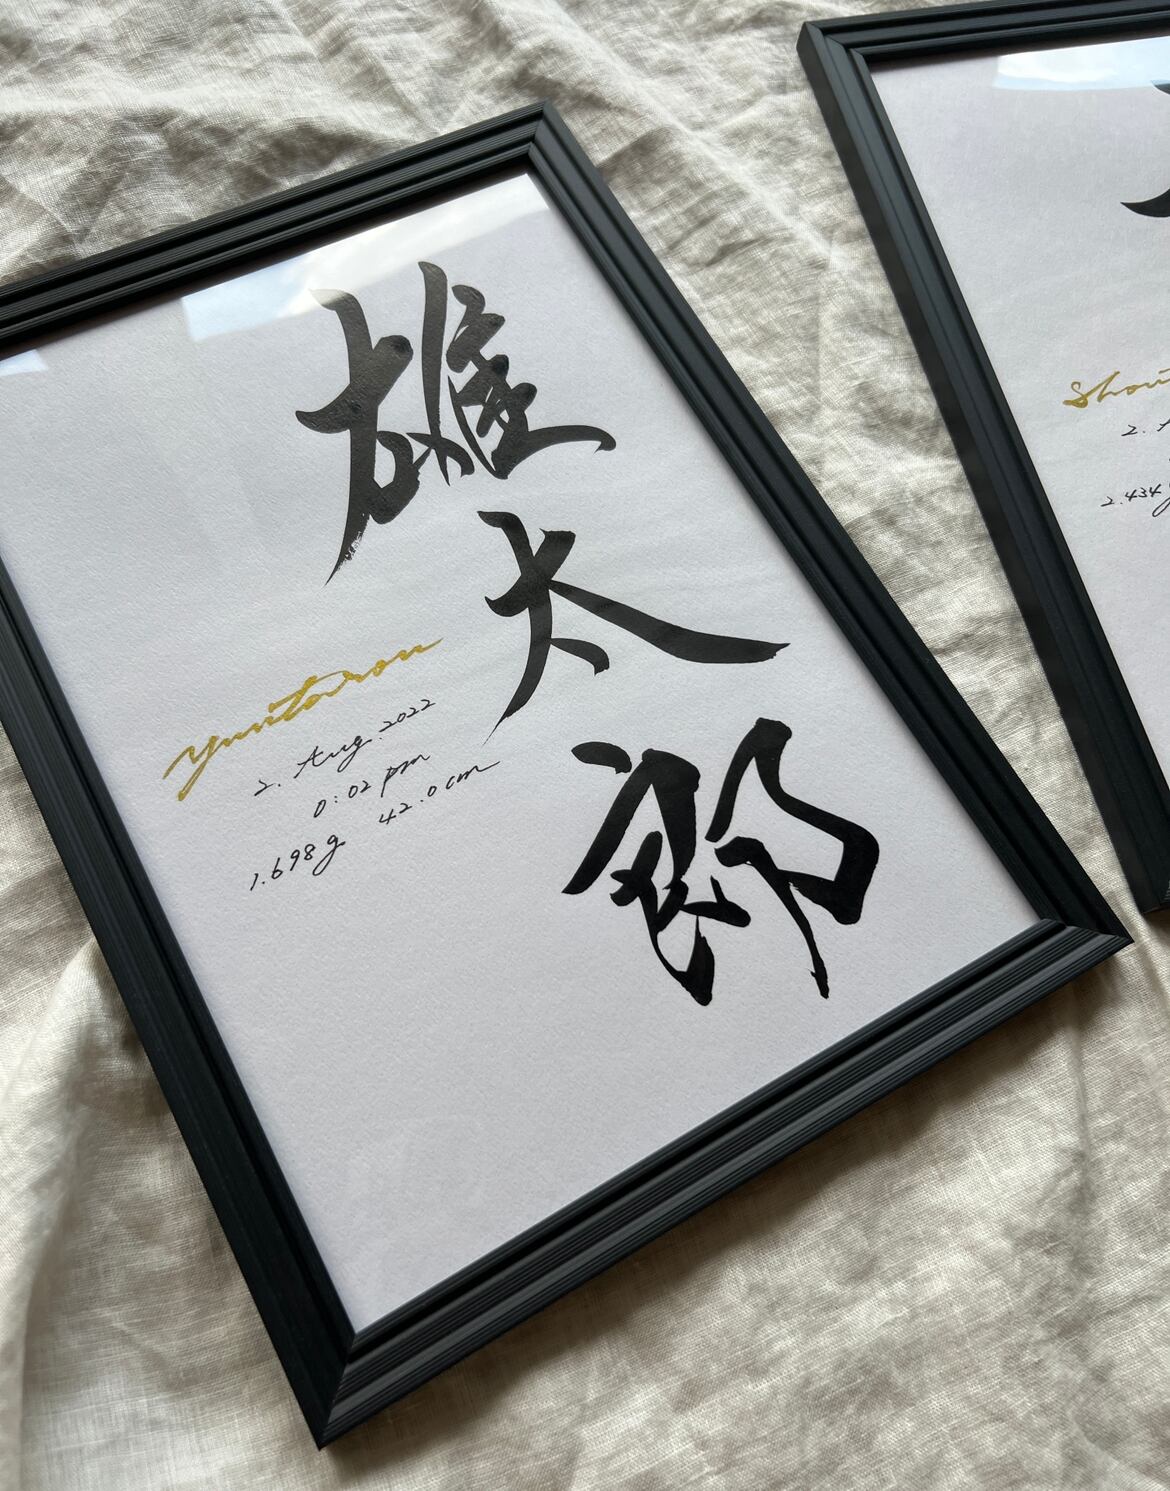 雄太郎
yuutarou
2. Aug. 2022
0:02 pm
1.698g 42.0cm
Shou
2.
2.434g